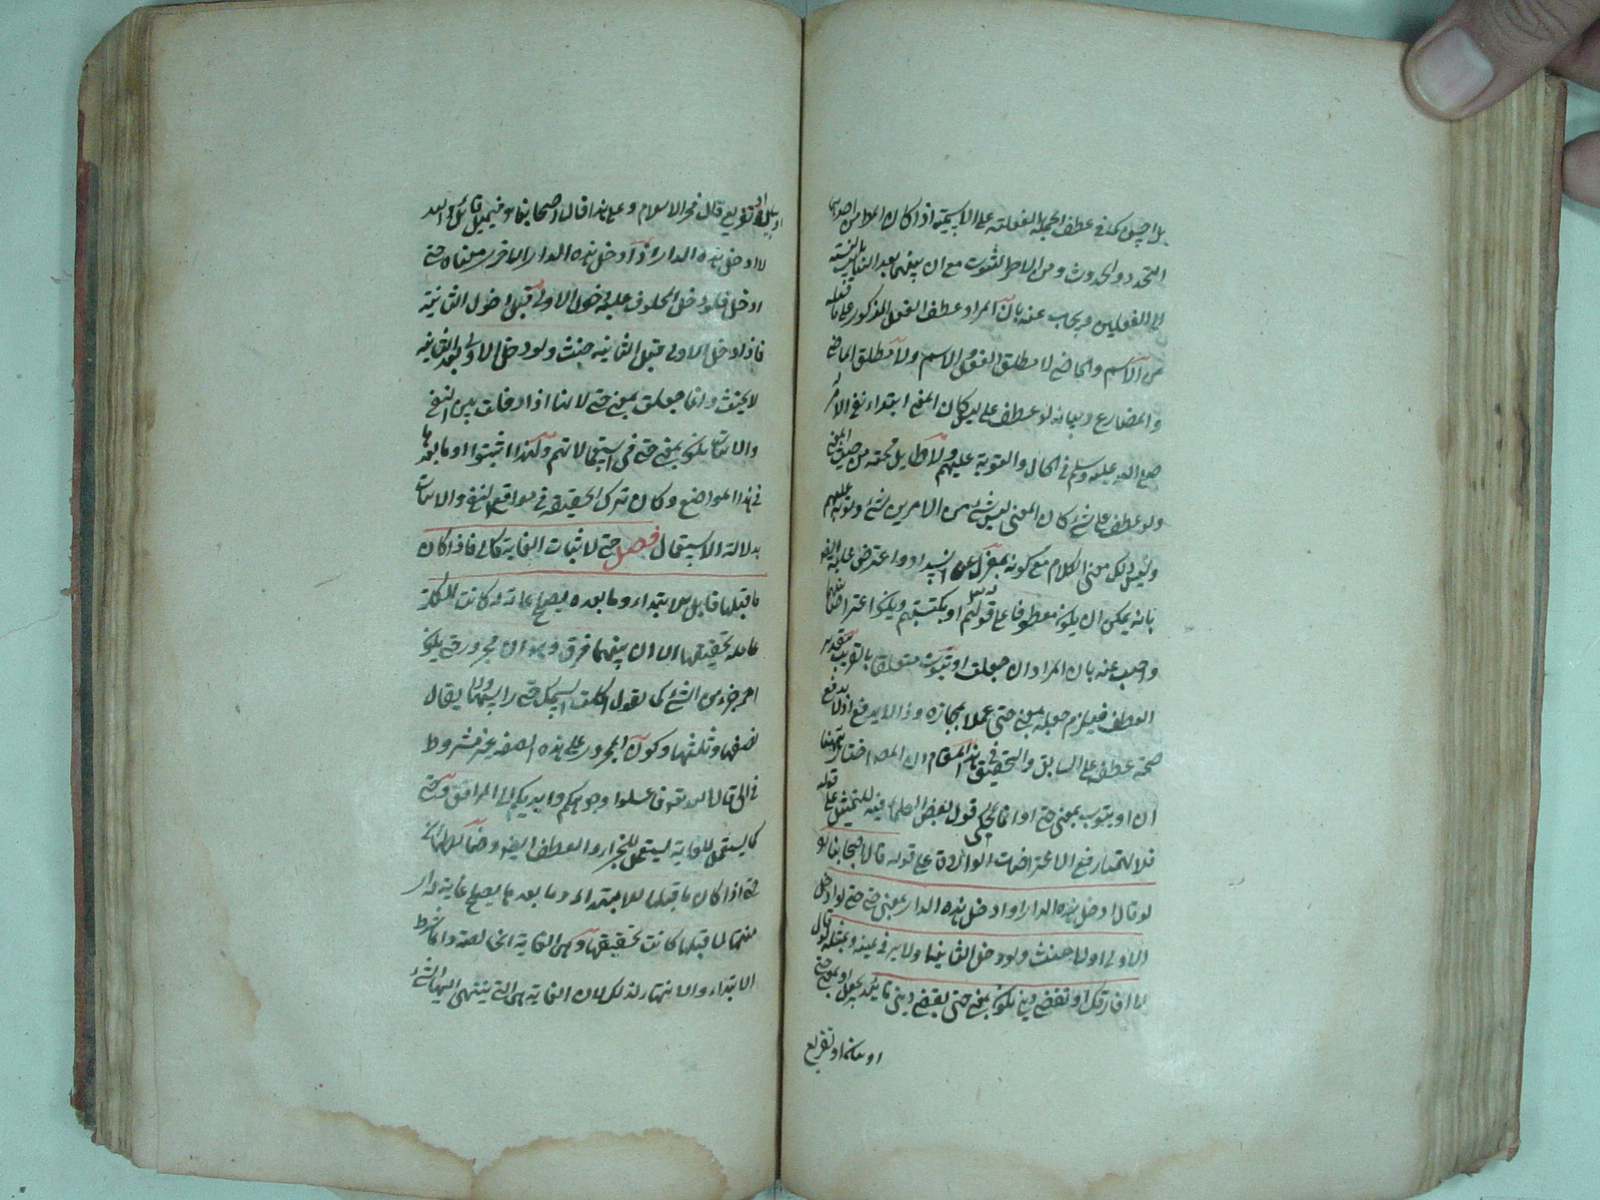 بل احسن كما في عطف الجملة الفعلية على الاسمية اذا كان المعا من احدهما
التجدد والحدوث ومن الاخر الثبوت مع ان بينهما بعد التباين بالنسبة
الى الفعلين ويجاب عنه بان المراد عطف الفعل المذكور على ما قبله
من الاسم والماضي لا مطلق الفعل على الاسم ولا مطلق الماضي
والمضارع وبيانه لو عطف على ليس كان المعنى ابتداء نفي الامر
صلى الله عليه وسلم في الحال والتوبة عليهم ولا طايل تحته من حيث المعنى
ولو عطف على شئ كان المعنى ليس شئ من الامرين شئ وتوبة عليهم
وليس ذلك معنى الكلام مع كونه بمعزل عن السداد واعترض عليه ايضا
بانه يمكن ان يكون معطوفا على قوله او يكبتهم ويكون اعتراضا بينهما
واجيب عنه بان المراد ان جعلت او يتوب متعلقا بالقريب بتقدير
العطف فيلزم جعله بمعنى حتى عملا بمجازه وذا لا يدفع اذ لا يدفع
صحة عطفه على السابق والتحقيق في هذا المقام ان المص اختار ههنا
ان او يتوب بمعنى حتى او انما يحكى قول بعض العلماء فيه للتمثيل على قوله
فلا اعتبار مع الاعتراضات الواردة على قوله قال اصحابنا لو
لو قال ادخل هذه الدار او ادخل هذه الدار بمعنى حتى حتى لو ادخل
الاولى اولا حنث ولو دخل الثانية اولا بر في يمينه ومثله لو قال
لا افارقك او تقضي ديني يكون بمعنى حتى تقضي ديني تأييد لجعل او بمعنى حتى
او تفريع
او تفريع قال فخر الاسلام وعلى هذا قال اصحابنا فيمن قال والله
لا ادخل هذه الدار او ادخل هذه الدار الاخرى معناه حتى
ادخل فلو دخل المحلوف عليه دخول الاولى قبل دخول الثانية
فاذا دخل الاولى قبل الثانية حنث ولو دخل الاولى بعد الثانية
لا يحنث وانما جعلت بمعنى حتى لانها اذا دخلت بين النفي
والاثبات يكون بمعنى حتى في استعمالاتهم ولهذا اثبتوا او ما بعدها
في هذا المواضع وكان ترك الحقيقة في مواقع النفي والاثبات
بدلالة الاستعمال فصل حتى لاثبات الغاية كالى فاذا كان
ما قبلها قابل للامتداد وما بعده يصلح غاية له كانت الكلمة
عاملة بحقيقتها الا ان بينهما فرق وهو ان مجرور حتى يكون
اخر جزء من الشئ كما تقول اكلت السمكة حتى راسها ولا يقال
نصفها وثلثها وكون المجرور على هذه الصفة غير مشروط
في الى قال الله تعالى فاغسلوا وجوهكم وايديكم الى المرافق وحتى
كما يستعمل للغاية يستعمل للمجازاة والعطف ايضا
حتى اذا كان ما قبلها للامتداد وما بعدها يصلح غاية له او
منتهى لما قبلها كانت بحقيقتها وهى الغاية الخالصة وانما شرط
الامتداد والانتهاء لذلك لان الغاية هى التي ينتهى اليها الشئ